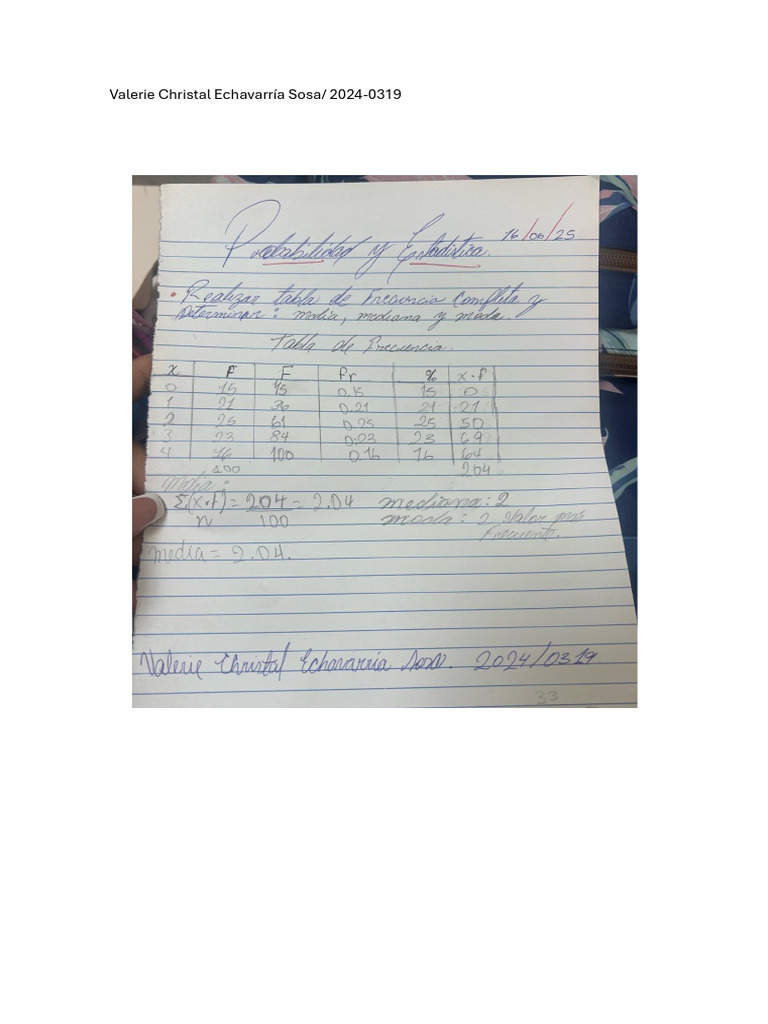 Valerie Christal Echavarría Sosa/ 2024-0319
Probabilidad y Estadistica. 16/06/25
• Realizar tabla de Frecuencia Completa y
Determinar: media, mediana y moda.
Tabla de Frecuencia.
x F F fr % x·f
0 15 15 0.15 15 0
1 21 36 0.21 21 21
2 25 61 0.25 25 50
3 23 84 0.03 23 69
4 16 100 0.16 16 64
100 204
Media:
Σ(x·f) = 204 = 2.04 mediana: 2
n 100 moda: 2 Valor más
Frecuente.
media = 2.04.
Valerie Christal Echavarria Sosa. 2024/0319
33